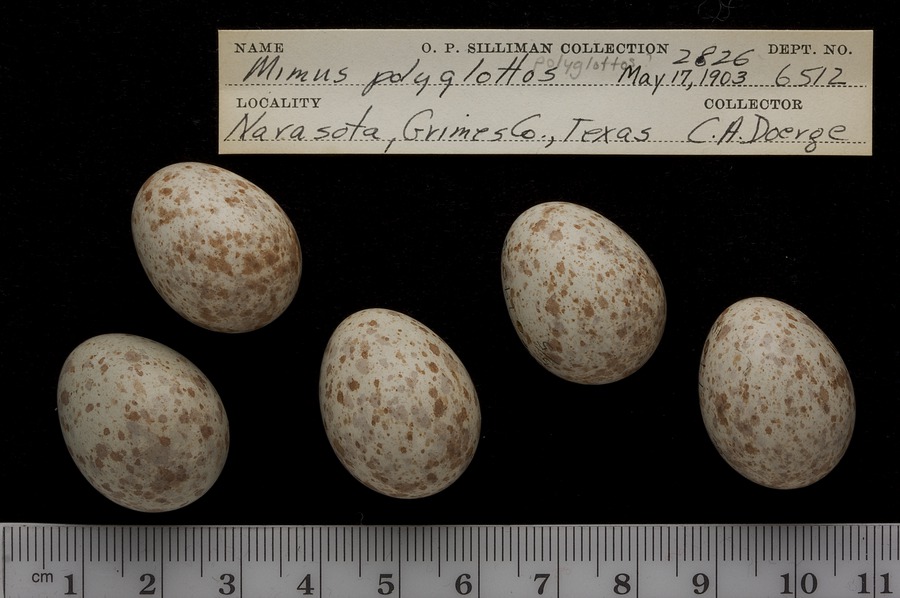 NAME O. P. SILLIMAN COLLECTION 2826 DEPT. NO.
Mimus polyglottos polyglottos May 17, 1903 6512
LOCALITY COLLECTOR
Navasota, Grimes Co., Texas C. A. Doerge
cm 1 2 3 4 5 6 7 8 9 10 11